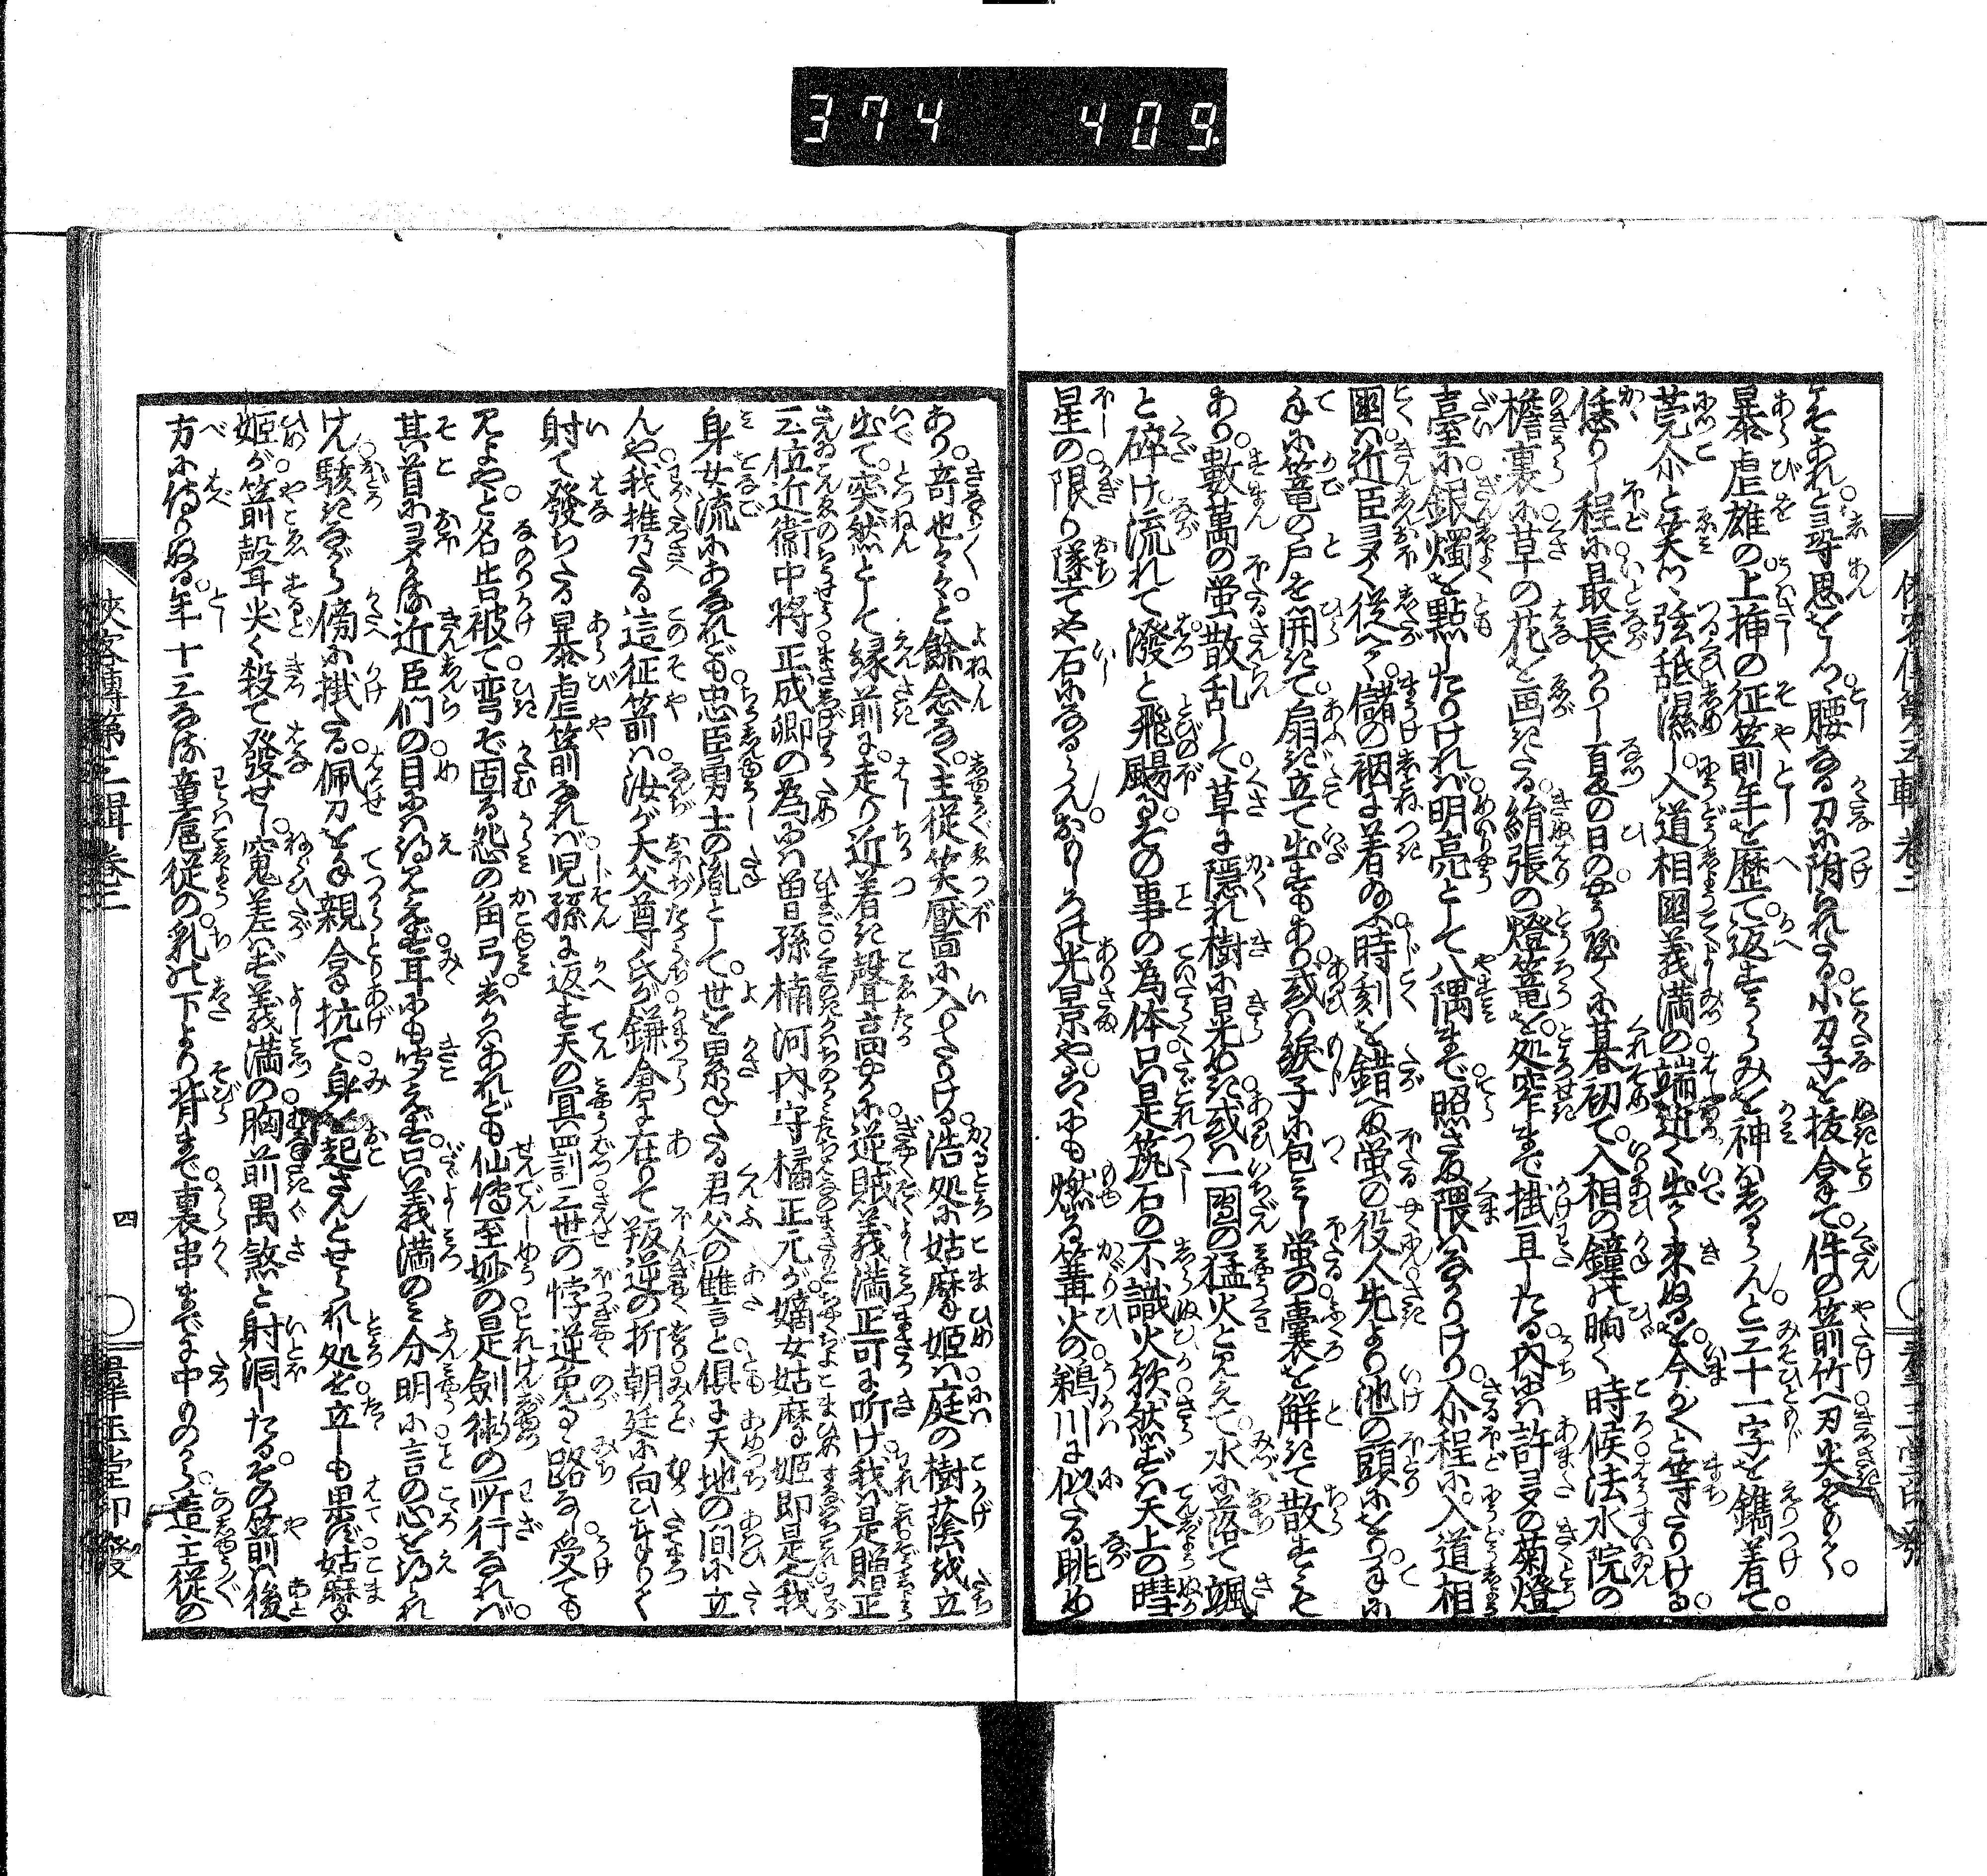 374 409
そあれと尋思をしつ腰なる刀に附られたる小刀子を抜拿て件の箭竹へ刃尖をもて
暴虐雄の上挿の征箭年を歴て返すうらみを神はしるらんと三十一字を鐫着て
莞尓と笑つゝ弦舐濕し入道相國義満の端近く出て来ぬるを今か〳〵と等たりける
恁りし程に最長かりし夏の日のやう殘くに暮初て入相の鐘の响く時候法水院の
檐裏に草の花を画きたる絹張の燈篭を処窄まで掛亘したる内には許多の菊燈
臺に銀燭を點したりければ明亮として八隅まで照さぬ隈はなかりけり尓程に入道相
國は近臣多く従へて儲の裀に着給ふ時刻を錯へぬ蛍の役人先より池の頭にをり
手に篭の戸を開きて扇き立て出すもあり或は綟子に包みし蛍の嚢を解きて散すも
あり數萬の蛍散乱して草に隠れ樹に晃めき或は一團の猛火と見えて水に落て颯
と碎け流れて潑と飛颺るその事の為体只是筑石の不識火欤然ずは天上の彗
星の限り墜てや石になるらんおかしき光景や故にも燃る篝火の鵜川に似たる眺め
あり奇也々々と餘念なく主従笑靨に入てける浩処に姑摩姫は庭の樹蔭を立
出て突然として縁前に走り近着き聲高やかに逆賊義満正可に听け我は是贈正
三位近衛中将正成卿の為には曽孫楠河内守橘正元が嫡女姑摩姫即是也我
身女流にあなれども忠臣勇士の胤として世を累ねたる君父の讐言と倶に天地の間に立
んや我推乃たる這征箭は汝が大父尊氏が鎌倉に在りて叛逆の折朝廷に向ひまつりて
射て發ちたる暴虐箭なれば児孫に返す天の冥罰三世の悖逆免るゝ路なし受ても
見よやと名告被て弯ぞ固る怨の角弓しかはあれども仙傳至妙の是劍術の所行なれば
其首に多かる近臣們の目には得見えず耳にも聞えず只義満のみ分明に言の心を得られ
けん駭きながら傍に掛たる佩刀を手親拿抗て身を起さんとせられし処を立しも果ず姑摩
姫が箭聲耳尖く殺て發せし窺差はず義満の胸前禺煞と射洞したるその箭は後
方に侍りぬる年十三なる童扈従の乳の下より背まで裏串までに中りのから這主従の
侠客傳第二輯卷二
四
群玉堂印發